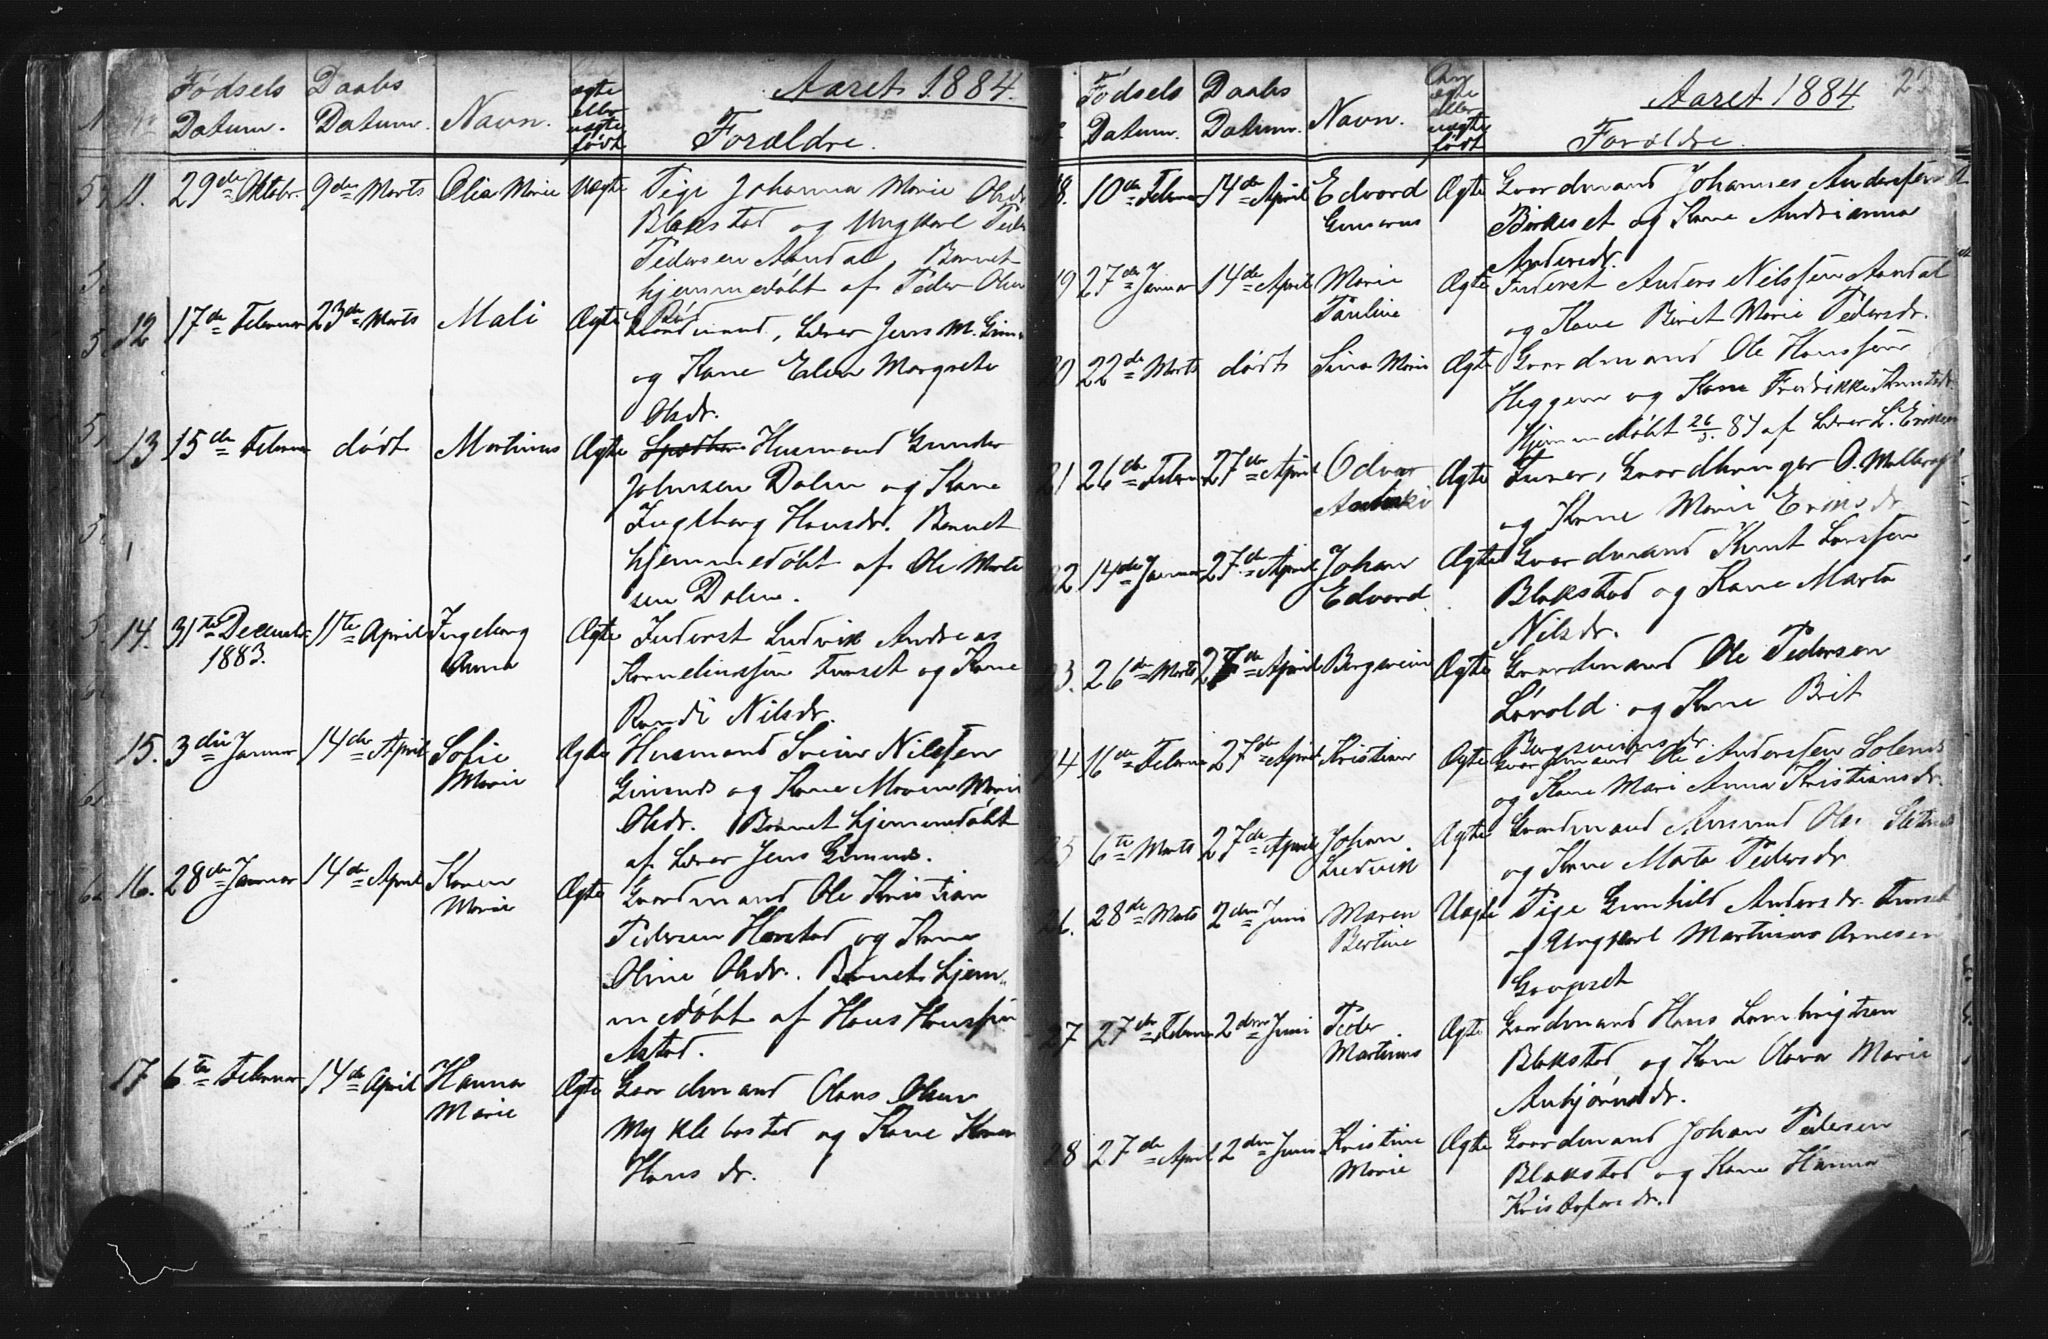 Aaret 1884.
Fødsels Datum. Daabs Datum. Navn. ægte eller uægte født Forældre.
11. 29de Oktobr. 9de Marts Olia Marie Uægte Pige Johanna Marie Olsdr.
Blakstad og Ungkarl Peder
Pedersen Aandal, Barnet
hjemmedøbt af Peder Olsen
12 17de Februar 23de Marts Mali Ægte Gaardmand, Lærer Jens M.
og Kone Elen Margrete
Olsdr.
13 15de Februar dødt Martinus Ægte Husmand Gunder
Johnsen Dalen og Kone
Ingeborg Hansdr. Barnet
hjemmedøbt af Ole Morte
sen Dalen.
14. 31te Decembr 1883. 11te April Ingeborg Anna Ægte Inderst Ludvik Andreas
Korneliussen Furset og Kone
Randi Nilsdr.
15. 3die Januar 14de April Sofie Marie Ægte Husmand Svein Nilssen
Gimnes og Kone Maren Marie
Olsdr. Barnet hjemmedøbt
af Lærer Jens Gimnes.
16. 28de Januar 14de April Karen Marie Ægte Gaardmand Ole Kristian
Pedersen Harstad og Kone
Oline Olsdr. Barnet hjem-
medøbt af Hans Hanssen
Astad.
17 6te Februar 14de April Hanna Marie Ægte Gaardmand Olaus Olsen
Myklebostad og Kone Karen
Hansdr.
Aaret 1884
Fødsels Datum. Daabs Datum. Navn. Om ægte eller uægte født Forældre.
18. 10de Februar 14de April Edvard Gunerius Ægte Gaardmand Johannes Anderssen
Birkeset og Kone Andrianna
Andersdr.
19 27de Januar 14de April Marie Pauline Ægte Inderst Anders Nilssen Aandal
og Kone Berit Marie Pedersdr.
20 22de Marts dødt Sina Marie Ægte Gaardmand Ole Hanssen
Heggem og Kone Fredrikke Knutsdr.
Hjemmedøbt 26/3. 84 af Lærer L. Eriksen
21 26de Februar 27de April Odvar Ægte Gaardbruger O.
og Kone Marie Eriksdr
22 14de Januar 27de April Johan Edvard. Ægte Gaardmand Knut Larssen
Blakstad og Kone Marta
Nilsdr.
23. 26de Marts 27de April Bergsvein Ægte Gaardmand Ole Pedersen
Løvold og Kone Brit
Bergsveinsdr.
24 16de Februar 27de April Kristian Ægte Gaardmand Ole Anderssen
og Kone Mari Anna Kristiansdr.
25 6te Marts 27de April Johan Ludvik Ægte Gaardmand Amund Ols.
og Kone Marta Pedersdr.
26. 28de Marts 2den Juni Maren Bertine Uægte Pige Gunhild Andersdr. Furset
og Ungkarl Martinus Arnesen
Gaupset
27 27de Februar 2den Juni Peder Martinus Ægte Gaardmand Hans Lambrigtsen
Blakstad og Kone Olava Marie
Anbjørnsdr.
28 27de April 2den Juni Kristine Marie Ægte Gaardmand Johan Pedersen
Blakstad og Kone Hanna
Kristofersdr.